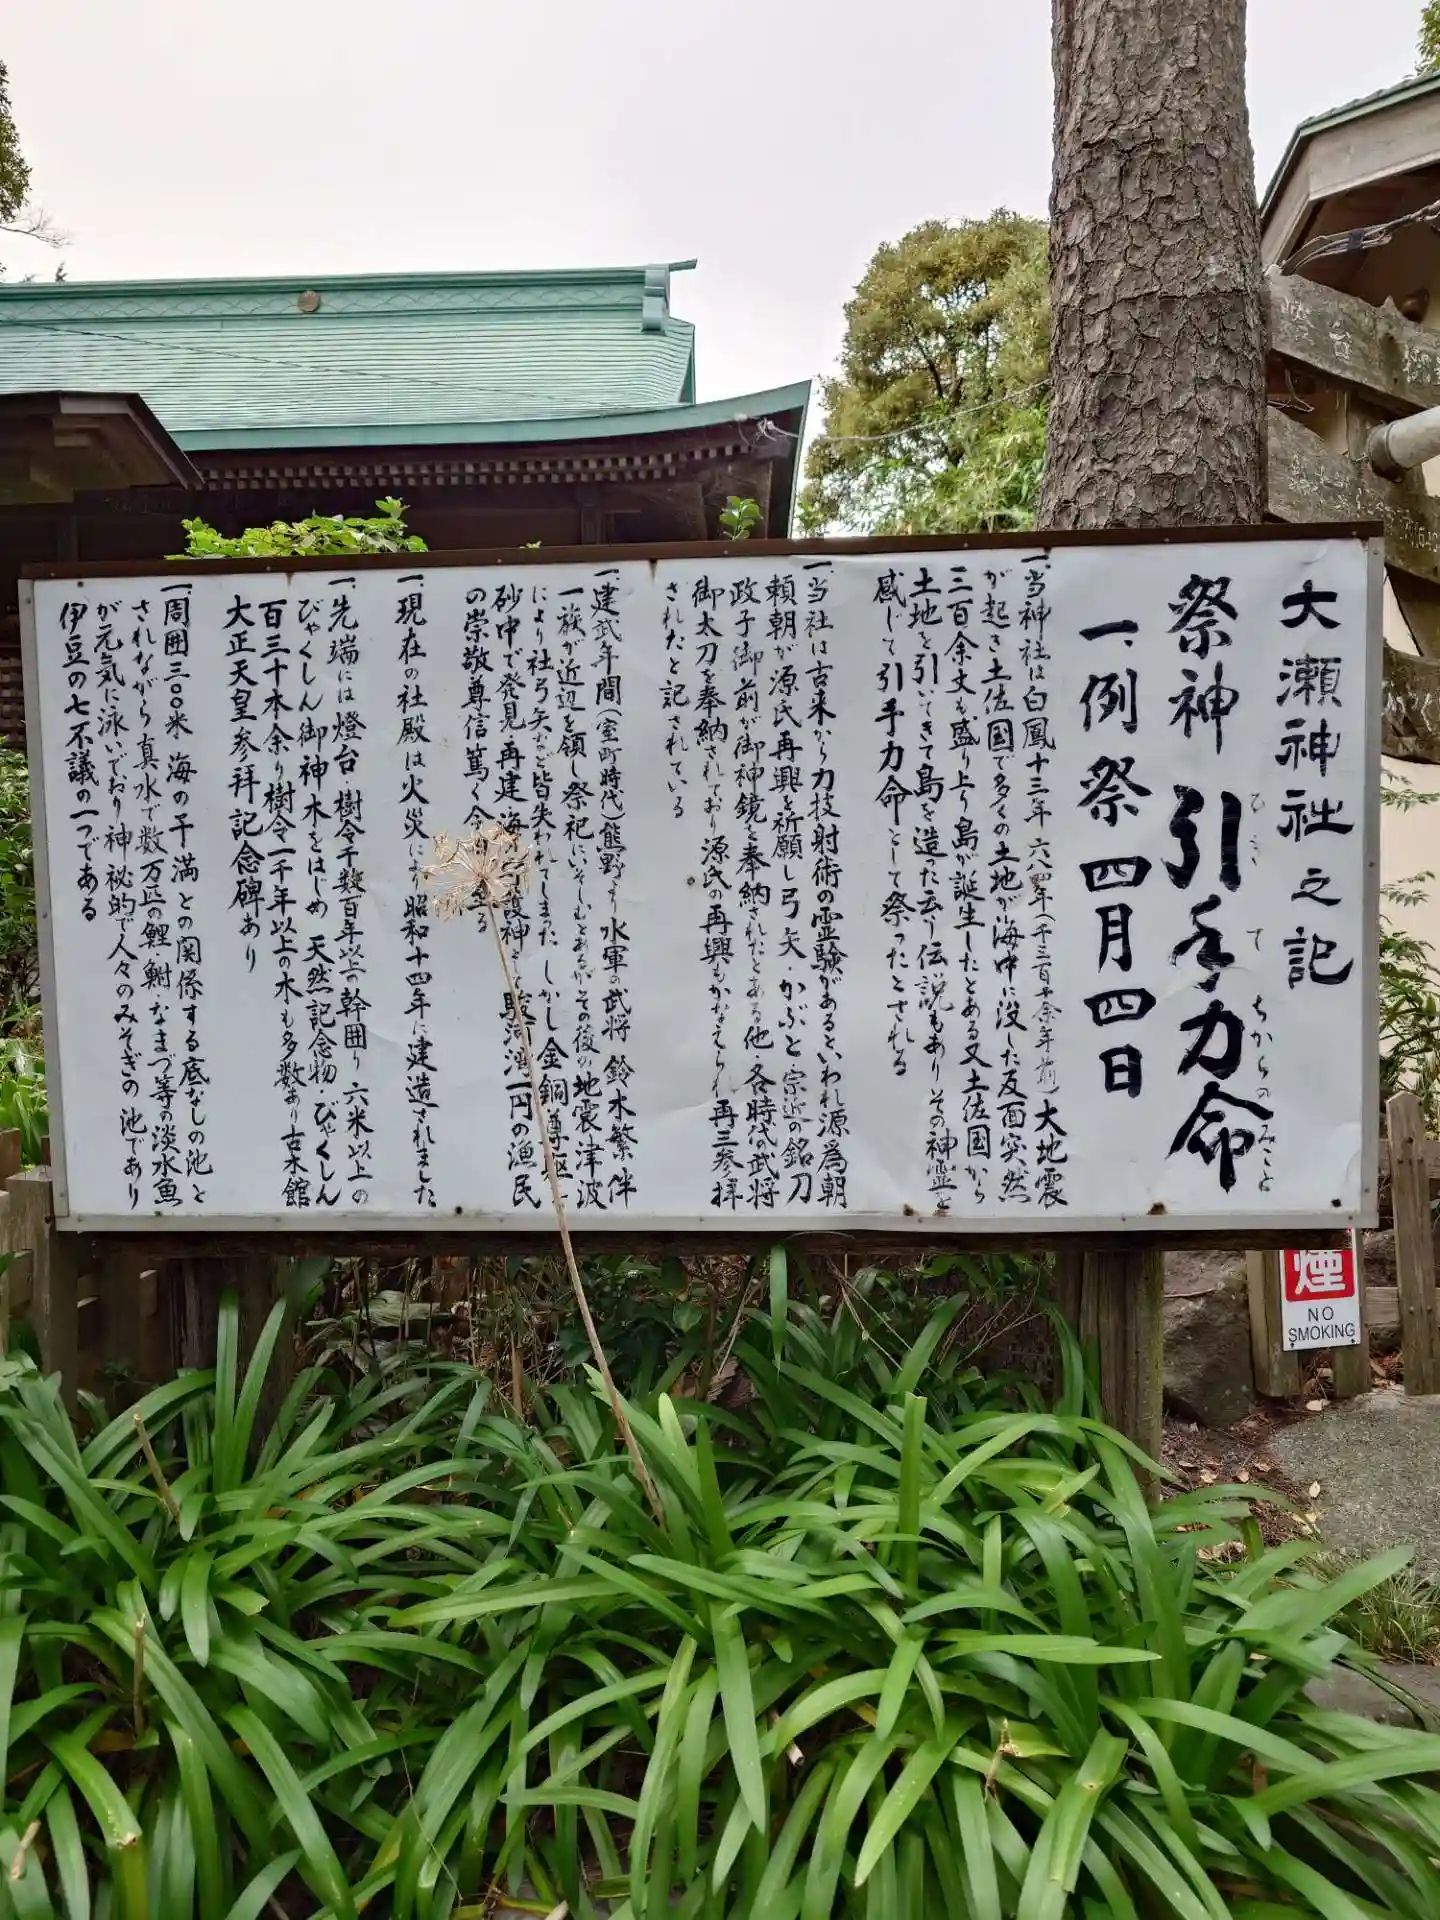 大瀬神社之記
祭神 引手力命
ひき て ちからのみこと
一、例祭 四月四日
一、当神社は白鳳十三年 六八四年(千三百余年前)大地震
が起き土佐国で多くの土地が海中に没した反面突然
三百余丈も盛り上り島が誕生したとある又土佐国から
土地を引いてきて島を造った云う伝説もありその神霊を
感じて引手力命として祭ったとされる
一、当社は古来から力技射術の霊験があるといわれ源為朝
頼朝が源氏再興を祈願し弓・矢・かぶと・宗近の銘刀
政子御前が御神鏡を奉納されたとある他・各時代の武将
御太刀を奉納されており源氏の再興もかなえられ再三参拝
されたと記されている
一、建武年間(室町時代)熊野より水軍の武将 鈴木繁伴
一族が近辺を領し祭祀にいそしむとあるがその後の地震津波
により社弓矢など皆失われてしまった しかし金銅尊
砂中で発見・再建・海の守護神として駿河湾一円の漁民
の崇敬尊信篤く今
一、現在の社殿は火災により昭和十四年に建造されました
一、先端には燈台 樹令千数百年以上の幹囲り六米以上の
びゃくしん御神木をはじめ 天然記念物・びゃくしん
百三十本余り樹令一千年以上の木も多数あり古木館
大正天皇参拝記念碑あり
一、周囲三〇〇米 海の干満との関係する底なしの池と
されながら真水で数万匹の鯉・鮒・なまづ等の淡水魚
が元気に泳いでおり神秘的で人々のみそぎの池であり
伊豆の七不議の一つである
煙
NO
SMOKING